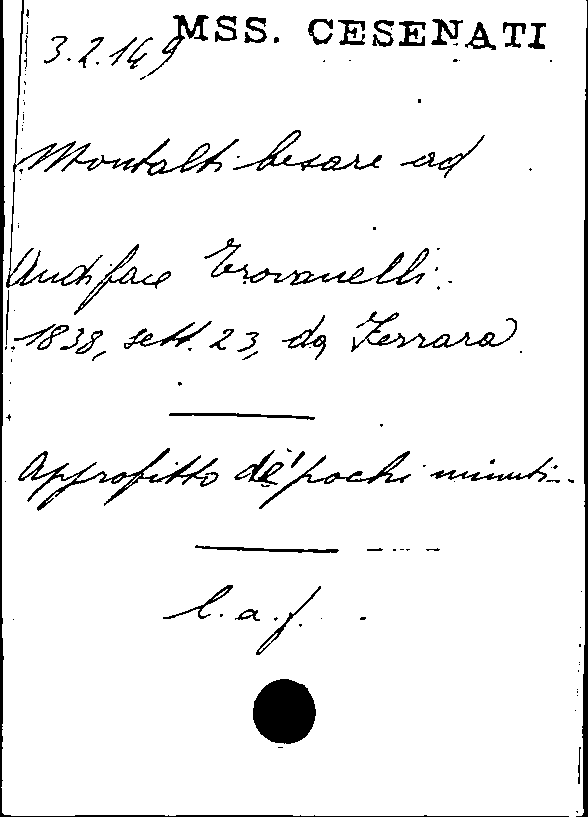 MSS. CESENATI
3.2.149
Montalti Cesare ad
Audiface Trovanelli.
1838, sett. 23, da Ferrara
Approfitto de' pochi minuti
l.a.f.